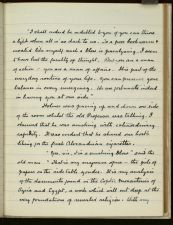 "I shall indeed be indebted to you if you can throw
a light where all is so dark to us. I am a poor bookworm &
invalid like myself such a blow is paralysing. I seem
to have lost the faculty of thought. But you are a man
of action - you are a man of affairs. It is part of the
everyday routine of your life. You can preserve your
balance in every emergency. We are fortunate indeed
in having you at our side."
Holmes was pacing up and down one side
of the room whilst the old Professor was talking. I
observed that he was smoking with extraordinary
rapidity. It was evident that he shared our host's
liking for the fresh Alexandrian cigarettes.
"Yes, sir, it is a crushing blow" said the
old man. "That is my magnum opus - the pile of
papers on the side table yonder. It is my analysis
of the documents found in the Coptic Monasteries of
Syria and Egypt, a work which will cut deep at the
very foundations of revealed religion. With my